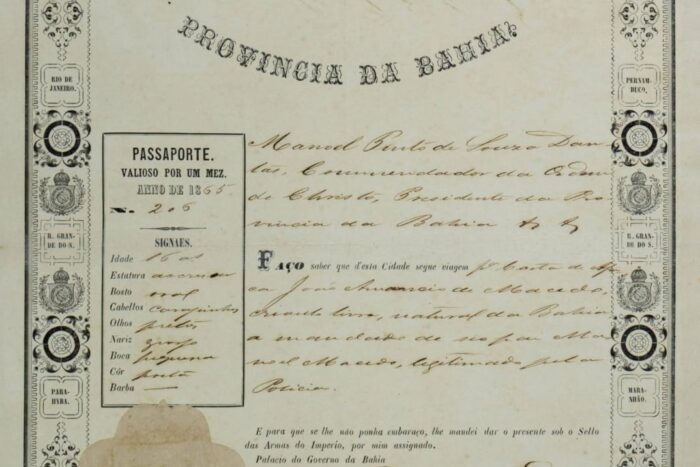 PROVINCIA DA BAHIA
RIO DE
JANEIRO.
PERNAM-
BUCO.
PASSAPORTE.
VALIOSO POR UM MEZ.
ANNO DE 1865
N. 206
SIGNAES.
Idade 16 as
Estatura
Rosto oval
Cabellos carapinhos
Olhos pretos
Nariz
Boca pequena
Côr preta
Barba —
Manoel Pinto de Souza Dan-
tas, Commendador da Ordem
de Christo, Presidente da Pro-
vincia da Bahia
FAÇO saber que d'esta Cidade segue viagem pa. Costa de Afri-
ca João de Macedo,
natural da Bahia
a mandado de seo pai Ma-
noel Macedo, legitimado pela
Policia.
E para que se lhe não ponha embaraço, lhe mandei dar o presente sob o Sello
das Armas do Imperio, por mim assignado.
Palacio do Governo da Bahia
R. GRAN-
DE DO S.
R. GRAN-
DE DO S.
PARA-
HYBA.
MARA-
NHÃO.